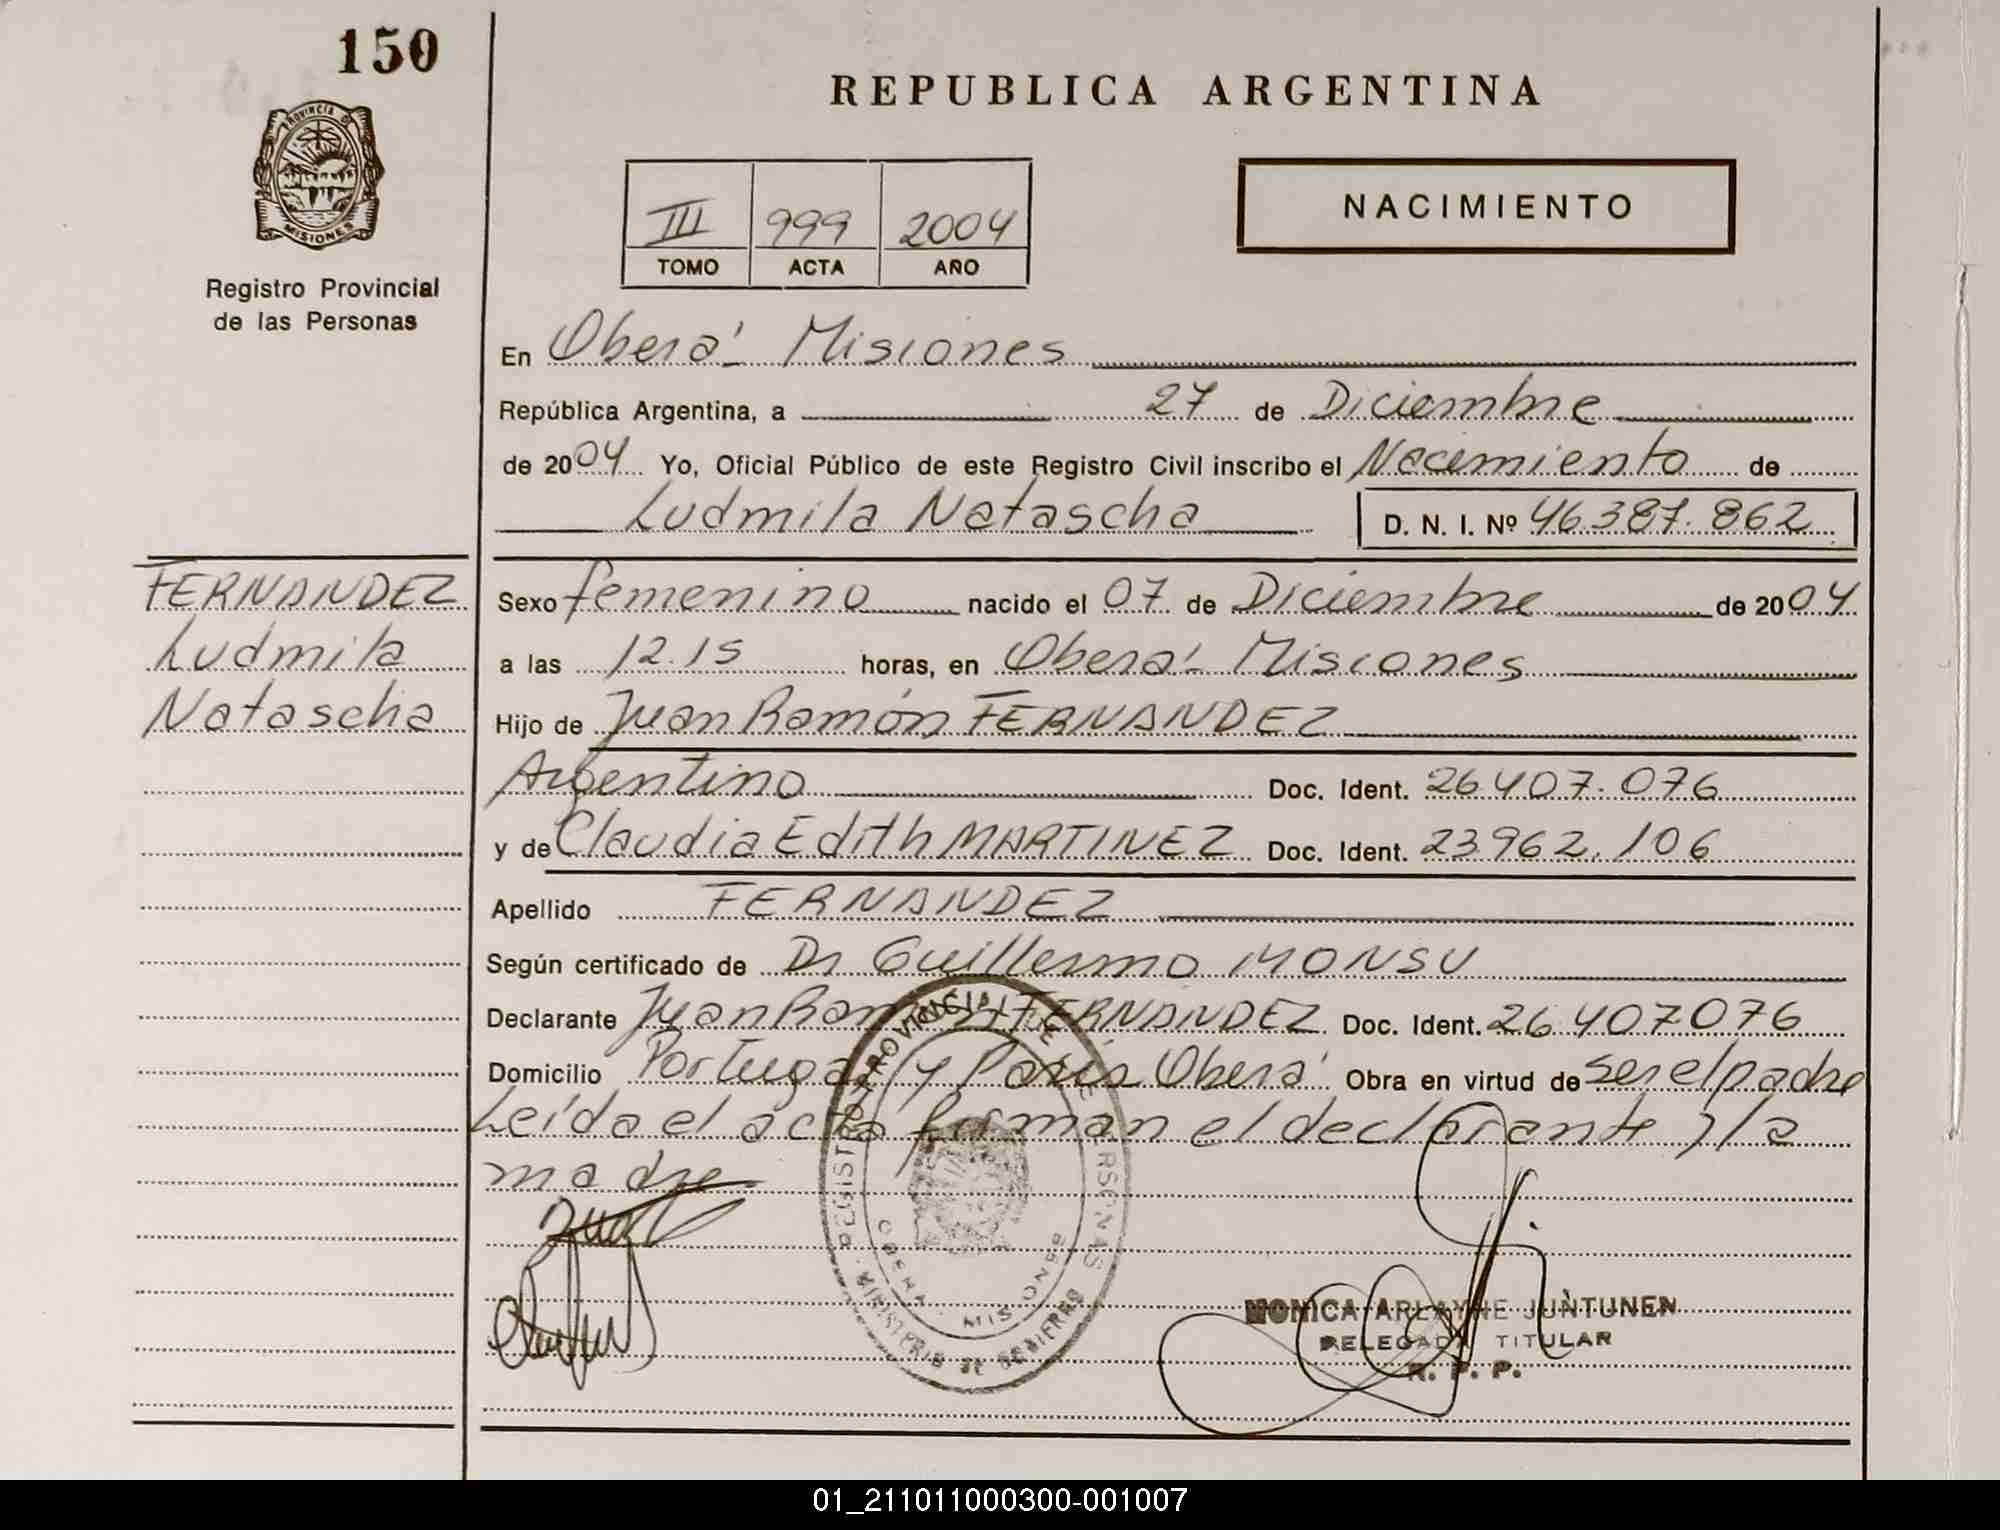 150
REPUBLICA ARGENTINA
PROVINCIA DE
MISIONES
Registro Provincial
de las Personas
NACIMIENTO
III 999 2004
TOMO ACTA AÑO
En Oberá - Misiones
República Argentina, a 27 de Diciembre
de 2004 Yo, Oficial Público de este Registro Civil inscribo el Nacimiento de
Ludmila Natascha D. N. I. Nº 46.387.862
FERNANDEZ
Ludmila
Natascha
Sexo femenino nacido el 07 de Diciembre de 2004
a las 12.15 horas, en Oberá - Misiones
Hijo de Juan Ramón FERNANDEZ
Argentino Doc. Ident. 26.407.076
y de Claudia Edith MARTINEZ Doc. Ident. 23.962.106
Apellido FERNANDEZ
Según certificado de Dr Guillermo MONSU
Declarante Juan Ramón FERNANDEZ Doc. Ident. 26.407076
Domicilio Portugal y París Oberá Obra en virtud de ser el padre
Leída el acta firman el declarante y la
madre
REGISTRO PROVINCIAL DE LAS PERSONAS
OBERA - MISIONES
MINISTERIO DE GOBIERNO
MONICA ARLAYNE JUNTUNEN
DELEGADA TITULAR
R. P. P.
01_211011000300-001007